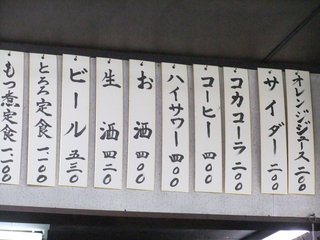 オレンジジュース 二〇〇
サイダー 二〇〇
コカコーラ 二〇〇
コーヒー 四〇〇
ハイサワー 四〇〇
お酒 四〇〇
生酒 四二〇
ビール 五三〇
とろろ定食 一一〇〇
もつ煮定食 一一〇〇